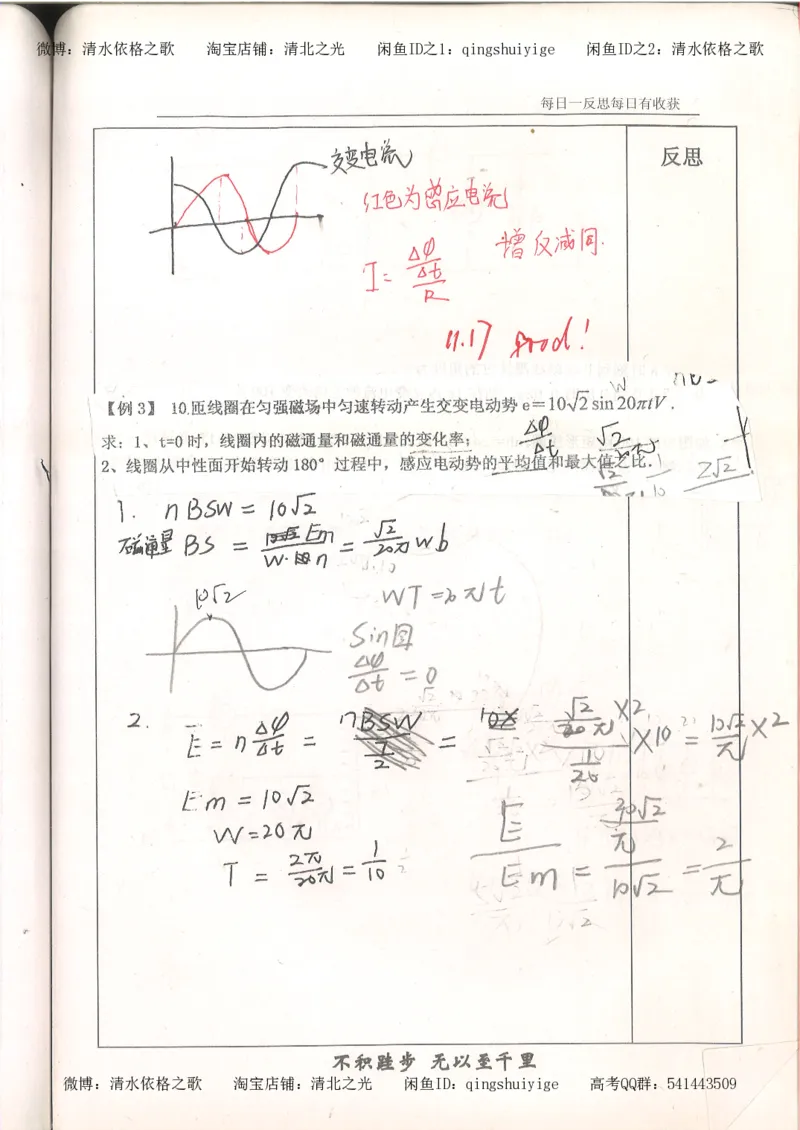 微博：清水依格之歌 淘宝店铺：清北之光 闲鱼ID之1：qingshuiyige 闲鱼ID之2：清水依格之歌
每日一反思每日有收获
反思
交变电流
红色为感应电流
增反减同.
I = Δφ/Δt / R
11.17 good!
【例3】 10匝线圈在匀强磁场中匀速转动产生交变电动势 e=10√2sin20πtV.
求：1、t=0时，线圈内的磁通量和磁通量的变化率; Δφ/Δt
2、线圈从中性面开始转动180°过程中，感应电动势的平均值和最大值之比.
2√2
1. nBSW = 10√2
磁通量 BS = Em/W·n = √2/20π wb
10√2
WT = 20πt
Sin图
Δφ/Δt = 0
2. E = n Δφ/Δt = = √2/20π ×2 / 1/20 ×10 = 10√2/π ×2
Em = 10√2
W = 20π
T = 2π/20π = 1/10
E/Em = 20√2/π / 10√2 = 2/π
不积跬步 无以至千里
微博：清水依格之歌 淘宝店铺：清北之光 闲鱼ID：qingshuiyige 高考QQ群：541443509